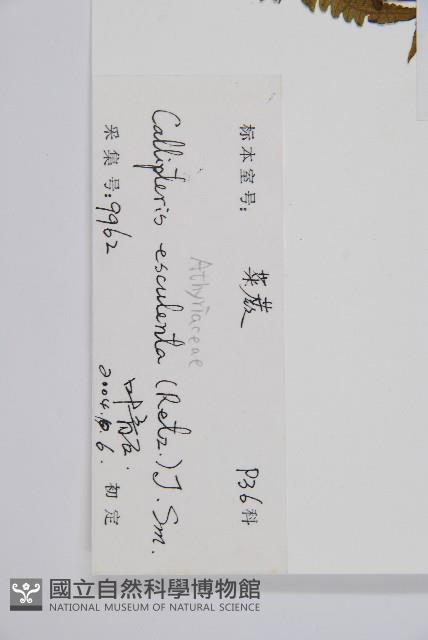 标本室号: 菜蕨 P36科
Athyriaceae
Callipteris esculenta (Retz.) J. Sm.
采集号: 9962 2004.6.6. 初定
國立自然科學博物館
NATIONAL MUSEUM OF NATURAL SCIENCE